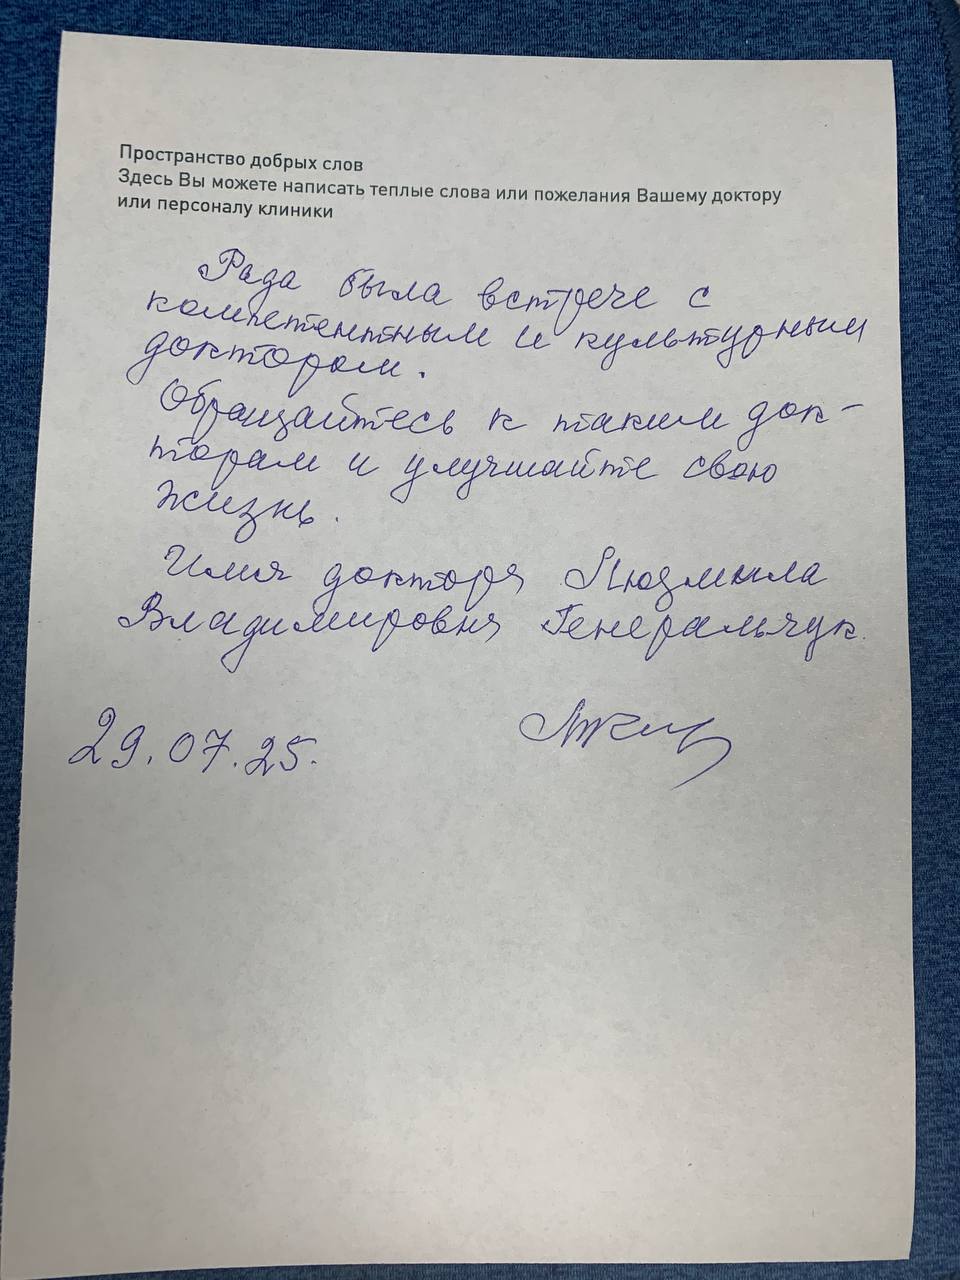 Пространство добрых слов
Здесь Вы можете написать теплые слова или пожелания Вашему доктору
или персоналу клиники
Рада была встрече с
компетентным и культурным
доктором.
Обращайтесь к таким док-
торам и улучшайте свою
жизнь.
Имя доктора Людмила
Владимировна Генеральчук.
29.07.25.